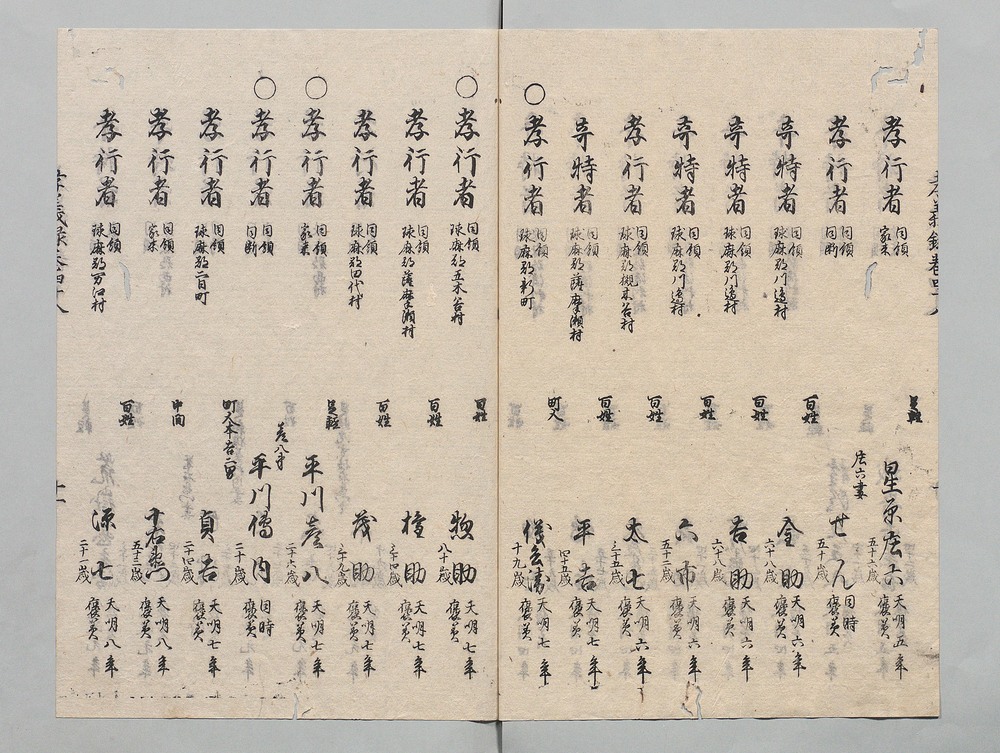 孝義録巻四十八
孝行者 同領家来 足軽 星原庄六 五十六歳 天明五年褒美
孝行者 同領同断 庄六妻 せん 五十歳 同時褒美
奇特者 同領球麻郡川邊村 百姓 金助 六十八歳 天明六年褒美
奇特者 同領球麻郡川邊村 百姓 吉助 六十八歳 天明六年褒美
奇特者 同領球麻郡川邊村 百姓 六市 五十二歳 天明六年褒美
孝行者 同領球麻郡槻木谷村 百姓 太七 三十五歳 天明六年褒美
奇特者 同領球麻郡薩摩瀬村 百姓 平吉 四十五歳 天明七年褒美
○孝行者 同領球麻郡新町 町人 儀兵衛 十九歳 天明七年褒美
○孝行者 同領球麻郡五木谷村 百姓 惣助 八十歳 天明七年褒美
孝行者 同領球麻郡薩摩瀬村 百姓 権助 三十四歳 天明七年褒美
孝行者 同領球麻郡田代村 百姓 茂助 三十九歳 天明七年褒美
○孝行者 同領家来 足軽 平川彦八 二十六歳 天明七年褒美
○孝行者 同領同断 彦八弟 平川傳内 二十歳 同時褒美
孝行者 同領球麻郡二日町 町人 貞吉 二十四歳 天明七年褒美
孝行者 同領家来 中間 十右衛門 五十三歳 天明八年褒美
孝行者 同領球麻郡万江村 百姓 源七 二十一歳 天明八年褒美
孝義録巻四十八
十一